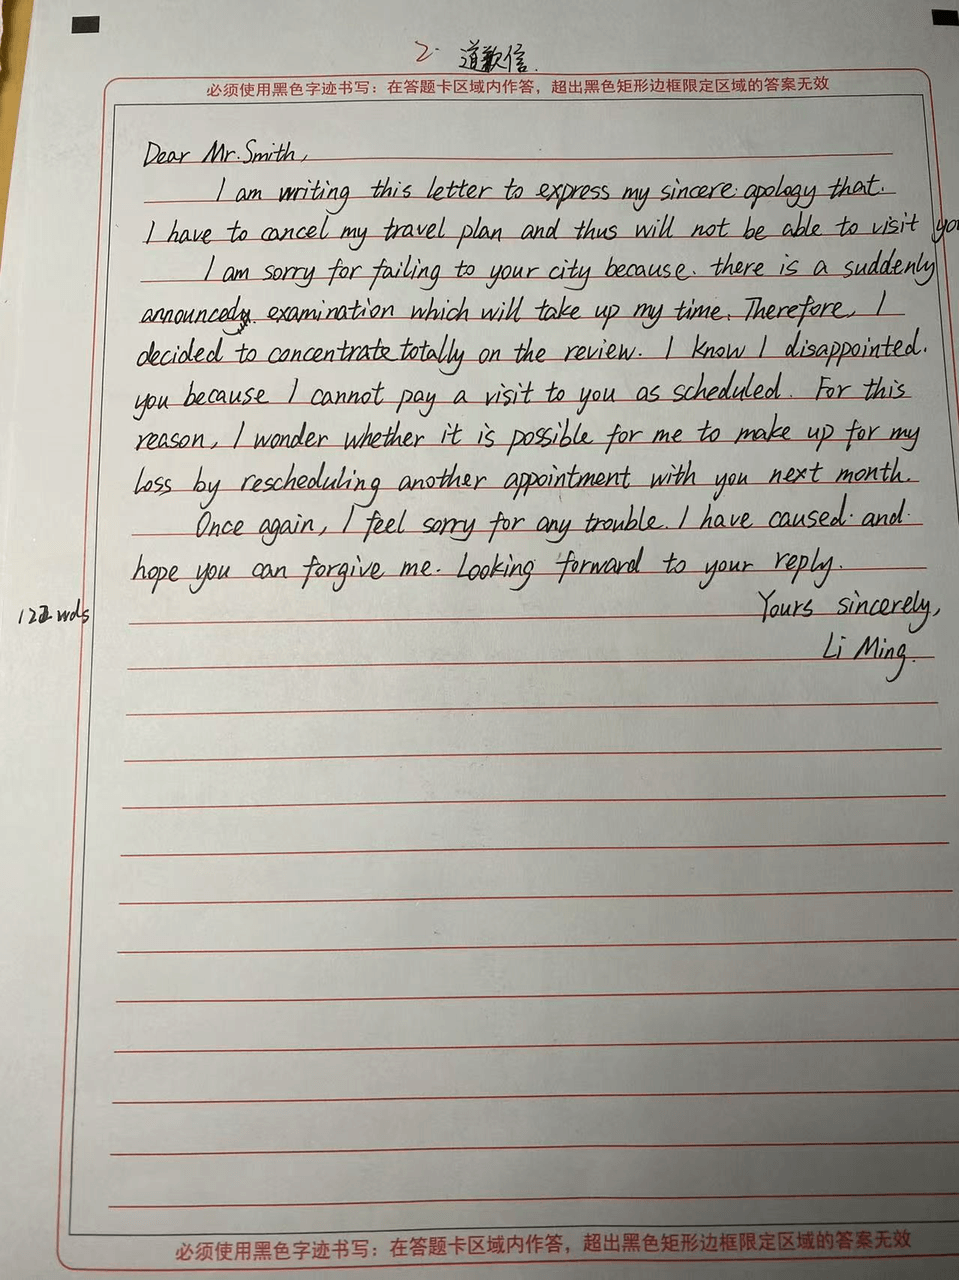 2. 道歉信.
必须使用黑色字迹书写：在答题卡区域内作答，超出黑色矩形边框限定区域的答案无效
Dear Mr. Smith,
I am writing this letter to express my sincere apology that.
I have to cancel my travel plan and thus will not be able to visit
I am sorry for failing to your city because. there is a suddenly
announced examination which will take up my time. Therefore, I
decided to concentrate totally on the review. I know I disappointed.
you because I cannot pay a visit to you as scheduled. For this
reason, I wonder whether it is possible for me to make up for my
loss by rescheduling another appointment with you next month.
Once again, I feel sorry for any trouble. I have caused. and.
hope you can forgive me. Looking forward to your reply.
122 wds
Yours sincerely,
Li Ming.
必须使用黑色字迹书写：在答题卡区域内作答，超出黑色矩形边框限定区域的答案无效